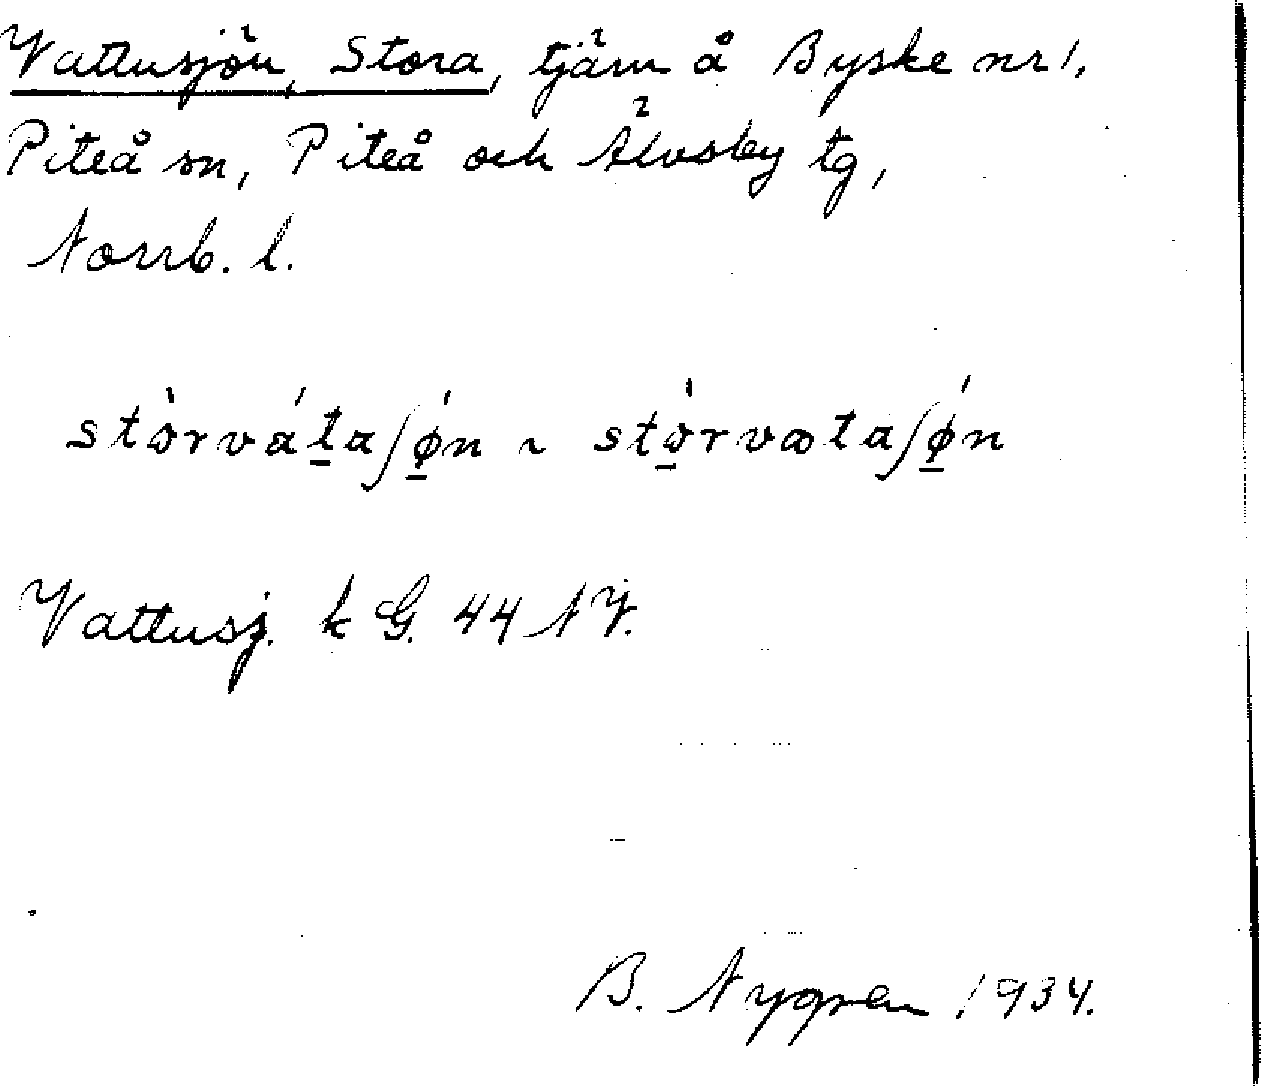 Vattusjön, Stora, tjärn å Byske nr 1,
Piteå sn, Piteå och Älvsby tg,
Norrb. l.
stòrvátaʃǿn ~ stòrvætaʃǿn
Vattusj. k G. 44 NV.
B. Nygren 1934.